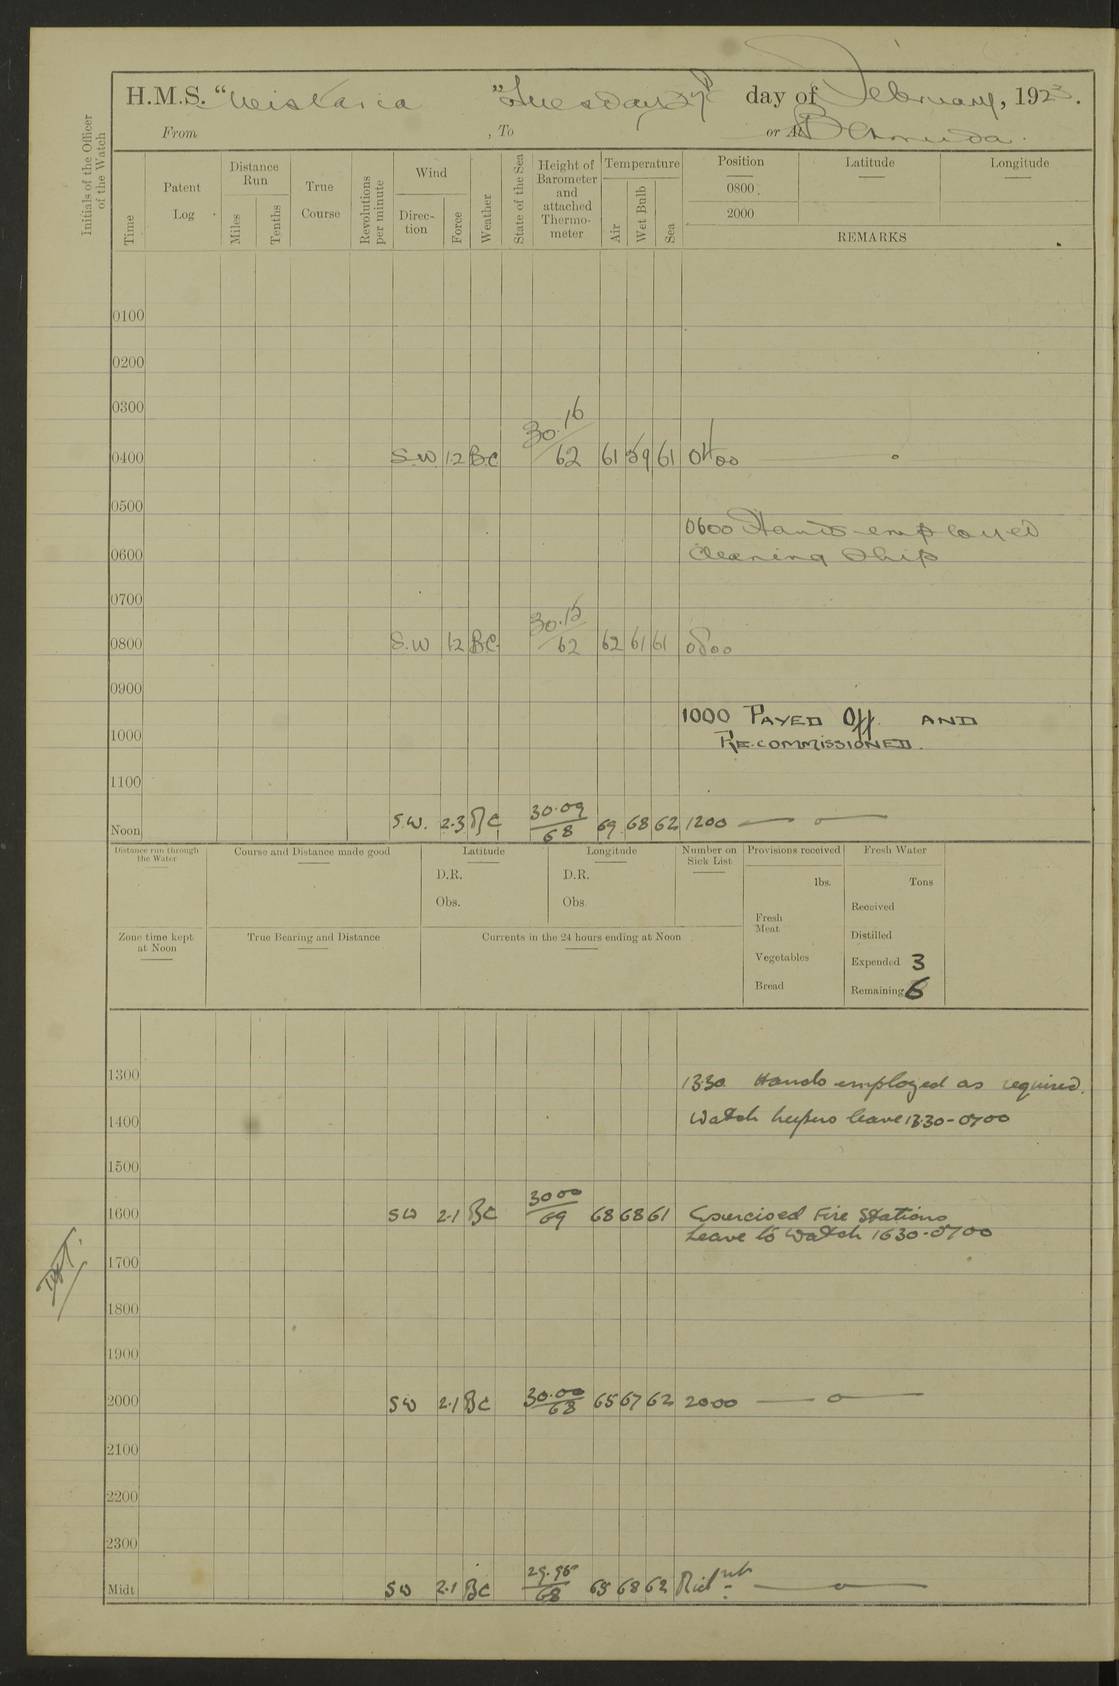 H.M.S. "Wistaria" Tuesday 27th day of February, 1923.
From , To or At Bermuda.
Initials of the Officer of the Watch
Time
Patent Log
Distance Run
Miles
Tenths
True Course
Revolutions per minute
Wind
Direction
Force
Weather
State of the Sea
Height of Barometer and attached Thermometer
Temperature
Air
Wet Bulb
Sea
Position Latitude Longitude
0800
2000
REMARKS
0100
0200
0300
0400 S.W 1.2 B.C 30.16/62 61 59 61 0400
0500
0600 Hands employed
0600 Cleaning Ship
0700
0800 S.W 1.2 B.C. 30.15/62 62 61 61 0800
0900
1000 PAYED Off. AND
1000 RE-COMMISSIONED.
1100
Noon S.W. 2.3 BC 30.09/68 69 68 62 1200
Distance run through the Water
Course and Distance made good
Latitude
D.R.
Obs.
Longitude
D.R.
Obs.
Number on Sick List
Provisions received
lbs.
Fresh Meat
Vegetables
Bread
Fresh Water
Tons
Received
Distilled
Expended 3
Remaining 6
Zone time kept at Noon
True Bearing and Distance
Currents in the 24 hours ending at Noon
1300 13.30 Hands employed as required.
1400 Watch keepers leave 13.30-0700
1500
1600 SW 2.1 BC 30.00/69 68 68 61 Exercised Fire Stations
Leave to Watch 1630-0700
1700
1800
1900
2000 SW 2.1 BC 30.00/68 65 67 62 2000
2100
2200
2300
Midt SW 2.1 BC 29.98/68 65 68 62 Midnt